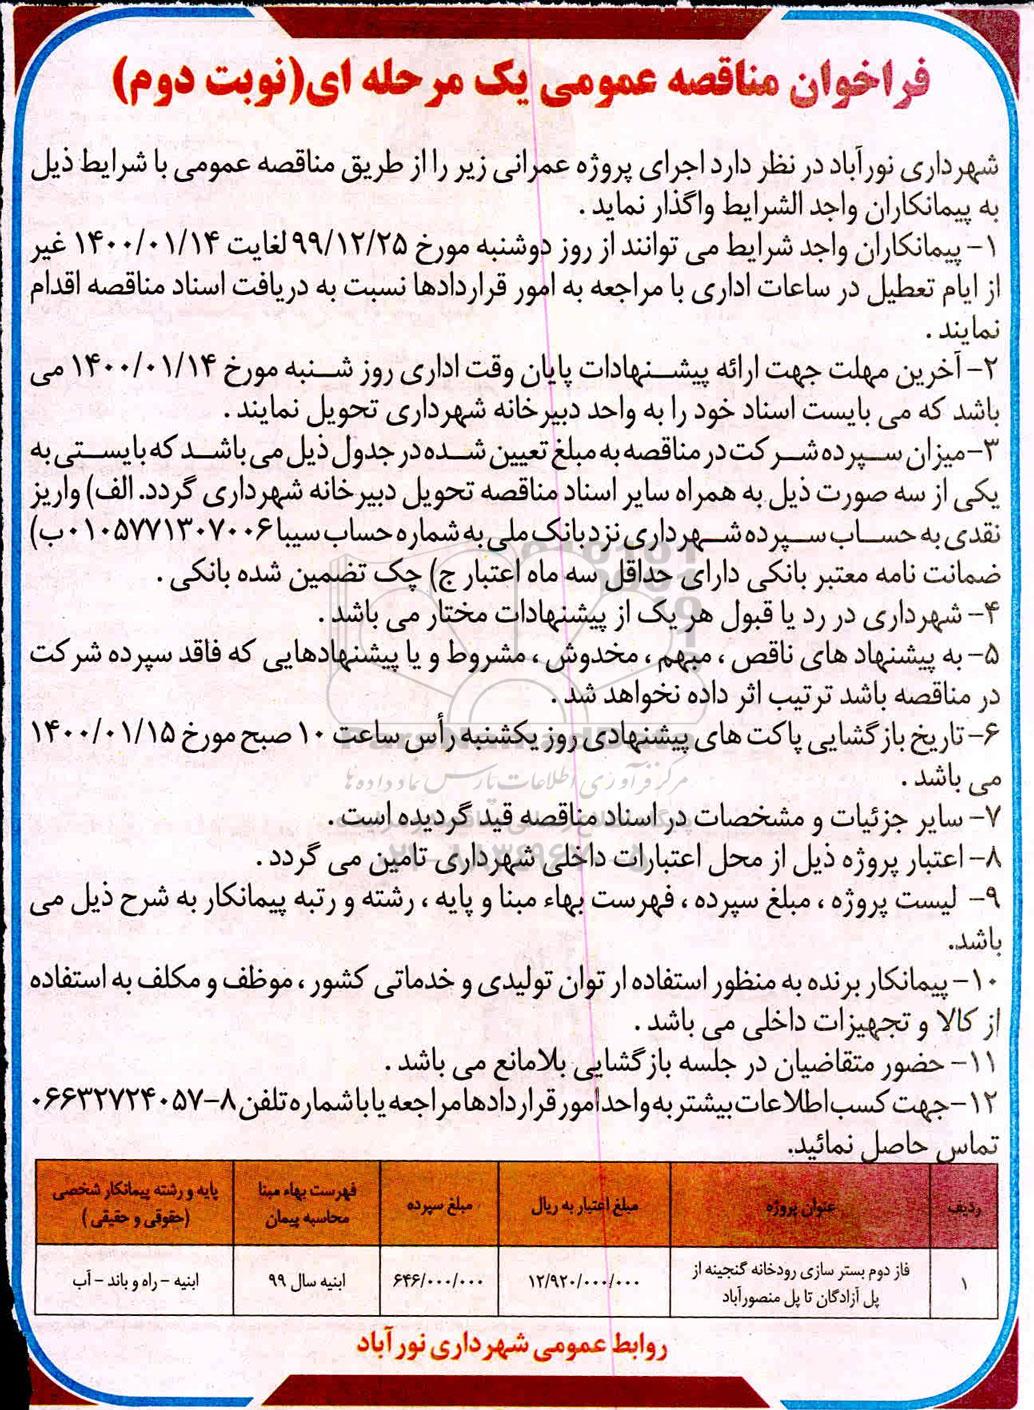 فراخوان مناقصه عمومی یک مرحله ای(نوبت دوم)
شهرداری نورآباد در نظر دارد اجرای پروژه عمرانی زیر را از طریق مناقصه عمومی با شرایط ذیل
به پیمانکاران واجد الشرایط واگذار نماید .
۱- پیمانکاران واجد شرایط می توانند از روز دوشنبه مورخ ۹۹/۱۲/۲۵ لغایت ۱۴۰۰/۰۱/۱۴ غیر
از ایام تعطیل در ساعات اداری با مراجعه به امور قراردادها نسبت به دریافت اسناد مناقصه اقدام
نمایند .
۲- آخرین مهلت جهت ارائه پیشنهادات پایان وقت اداری روز شنبه مورخ ۱۴۰۰/۰۱/۱۴ می
باشد که می بایست اسناد خود را به واحد دبیرخانه شهرداری تحویل نمایند .
۳-میزان سپرده شرکت در مناقصه به مبلغ تعیین شده در جدول ذیل می باشد که بایستی به
یکی از سه صورت ذیل به همراه سایر اسناد مناقصه تحویل دبیرخانه شهرداری گردد. الف) واریز
نقدی به حساب سپرده شهرداری نزد بانک ملی به شماره حساب سیبا ۰۱۰۵۷۷۱۳۰۷۰۰۶ ب)
ضمانت نامه معتبر بانکی دارای حداقل سه ماه اعتبار ج) چک تضمین شده بانکی .
۴- شهرداری در رد یا قبول هر یک از پیشنهادات مختار می باشد .
۵- به پیشنهاد های ناقص ، مبهم ، مخدوش ، مشروط و یا پیشنهادهایی که فاقد سپرده شرکت
در مناقصه باشد ترتیب اثر داده نخواهد شد .
۶- تاریخ بازگشایی پاکت های پیشنهادی روز یکشنبه رأس ساعت ۱۰ صبح مورخ ۱۴۰۰/۰۱/۱۵
می باشد .
۷- سایر جزئیات و مشخصات در اسناد مناقصه قید گردیده است .
۸- اعتبار پروژه ذیل از محل اعتبارات داخلی شهرداری تامین می گردد .
۹- لیست پروژه ، مبلغ سپرده ، فهرست بهاء مبنا و پایه ، رشته و رتبه پیمانکار به شرح ذیل می
باشد.
۱۰- پیمانکار برنده به منظور استفاده ار توان تولیدی و خدماتی کشور ، موظف و مکلف به استفاده
از کالا و تجهیزات داخلی می باشد .
۱۱- حضور متقاضیان در جلسه بازگشایی بلامانع می باشد .
۱۲-جهت کسب اطلاعات بیشتر به واحد امور قراردادها مراجعه یا با شماره تلفن ۸-۰۶۶۳۲۷۲۴۰۵۷
تماس حاصل نمائید.
ردیف عنوان پروژه مبلغ اعتبار به ریال مبلغ سپرده فهرست بهاء مبنا محاسبه پیمان پایه و رشته پیمانکار شخصی (حقوقی و حقیقی )
۱ فاز دوم بستر سازی رودخانه گنجینه از پل آزادگان تا پل منصورآباد ۱۲/۹۲۰/۰۰۰/۰۰۰ ۶۴۶/۰۰۰/۰۰۰ ابنیه سال ۹۹ ابنیه - راه و باند - آب
روابط عمومی شهرداری نورآباد
مرکز فرآوری اطلاعات پارس نماد داده ها